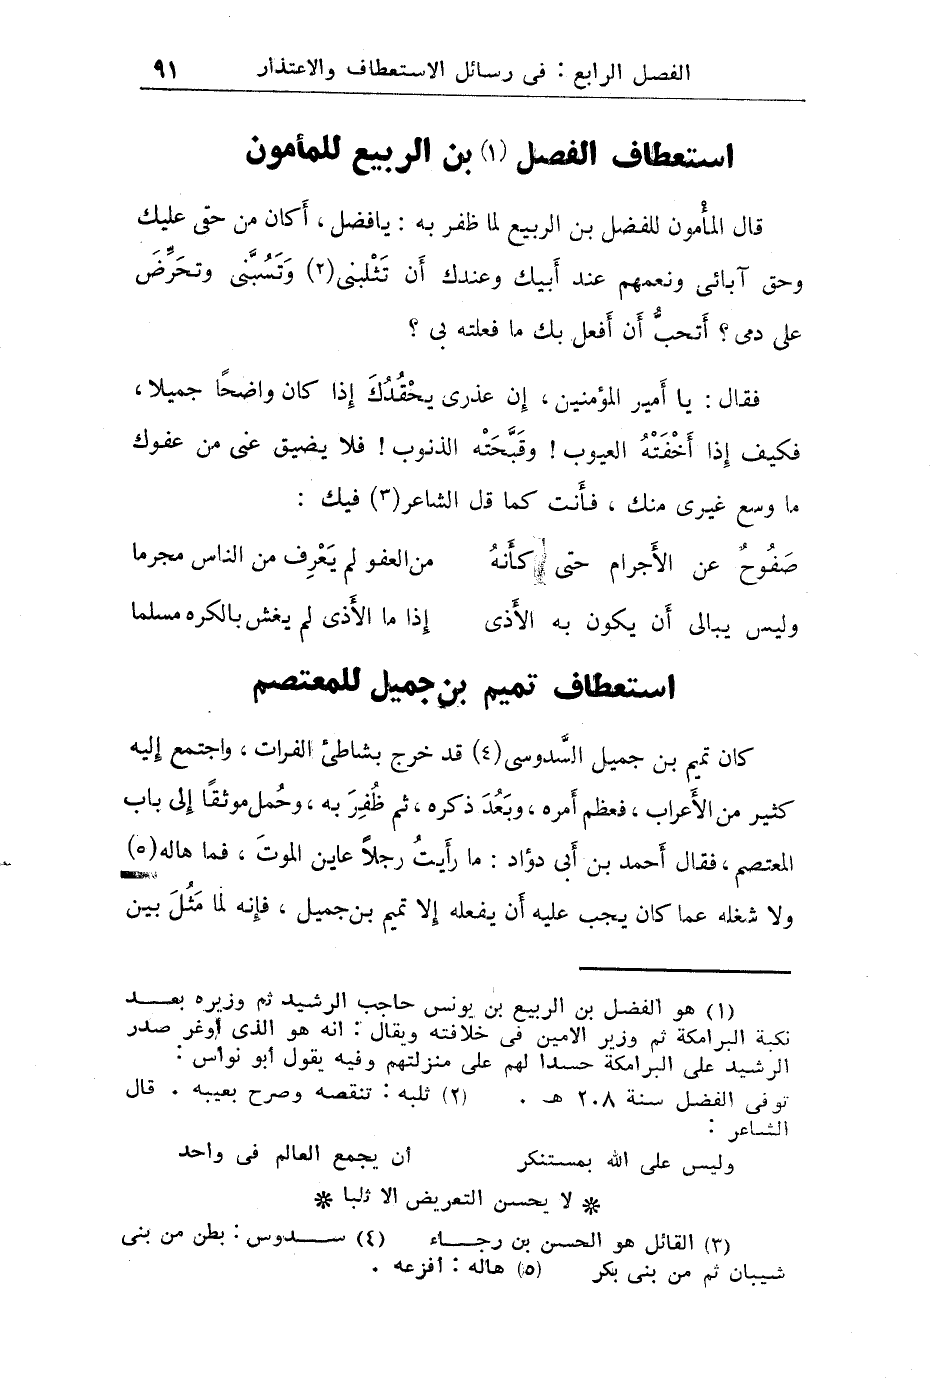 الفصل الرابع : فى رسائل الاستعطاف والاعتذار ٩١
استعطاف الفصل (١) بن الربيع للمأمون
قال المأمون للفضل بن الربيع لما ظفر به : يافضل ، أكان من حقى عليك
وحق آبائى ونعمهم عند أبيك وعندك أن تَثْلبنى(٢) وَتَسُبَّنى وتحَرِّضَ
على دمى ؟ أتحبُّ أن أفعل بك ما فعلته بى ؟
فقال : يا أمير المؤمنين ، إن عذرى يحْقُدُكَ إذا كان واضحًا جميلا ،
فكيف إذا أخْفَتْهُ العيوب ! وقَبَّحَتْه الذنوب ! فلا يضيق عنى من عفوك
ما وسع غيرى منك ، فأنت كما قل الشاعر(٣) فيك :
صَفُوحٌ عن الأجرام حتى كأنهُ من العفو لم يَعْرِف من الناس مجرما
وليس يبالى أن يكون به الأذى إذا ما الأذى لم يغش بالكره مسلما
استعطاف تميم بن جميل للمعتصم
كان تميم بن جميل السَّدوسى(٤) قد خرج بشاطئ الفرات ، واجتمع إليه
كثير من الأعراب ، فعظم أمره ، وبَعُدَ ذكره ، ثم ظُفِرَ به ، وحُمل موثقًا إلى باب
المعتصم ، فقال أحمد بن أبى دؤاد : ما رأيتُ رجلاً عاين الموتَ ، فما هاله(٥)
ولا شغله عما كان يجب عليه أن يفعله إلا تميم بن جميل ، فإنه لما مَثُلَ بين
(١) هو الفضل بن الربيع بن يونس حاجب الرشيد ثم وزيره بعد
نكبة البرامكة ثم وزير الامين فى خلافته ويقال : انه هو الذى أوغر صدر
الرشيد على البرامكة حسدا لهم على منزلتهم وفيه يقول أبو نواس :
توفى الفضل سنة ٢٠٨ هـ . (٢) ثلبه : تنقصه وصرح بعيبه . قال
الشاعر :
وليس على الله بمستنكر أن يجمع العالم فى واحد
* لا يحسن التعريض الا ثلبا *
(٣) القائل هو الحسن بن رجاء (٤) سدوس : بطن من بنى
شيبان ثم من بنى بكر (٥) هاله : أفزعه .